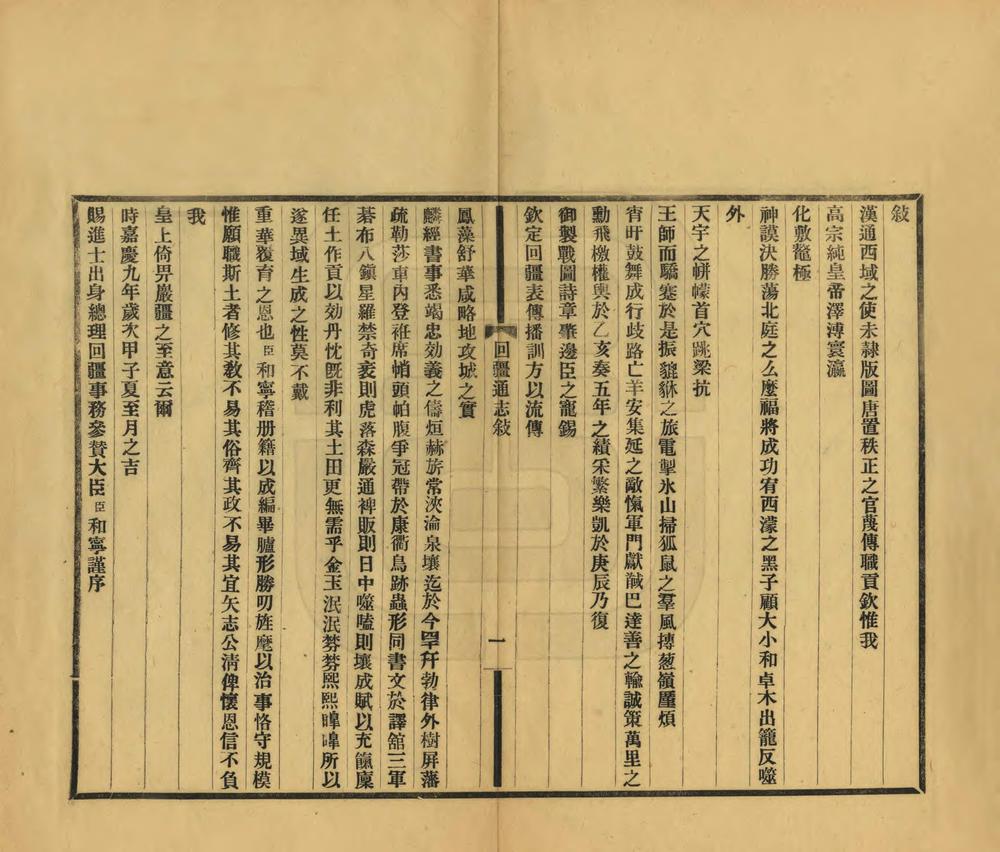 敍
漢通西域之使未隷版圖唐置秩正之官蔑傳職貢欽惟我
高宗純皇帝澤溥寰瀛
化敷鼇極
神謨決勝蕩北庭之么麼福將成功宥西濛之黑子顧大小和卓木出籠反噬
外
天宇之帡幪首穴跳梁抗
王師而驕蹇於是振貔貅之旅電掣氷山掃狐鼠之羣風摶葱嶺鏖煩
宵旰鼓舞成行歧路亡羊安集延之敵愾軍門獻馘巴達善之輸誠策萬里之
勳飛檄權輿於乙亥奏五年之績釆繁樂凱於庚辰乃復
御製戰圖詩章肇邊臣之寵錫
欽定回疆表傳播訓方以流傳
回疆通志敍
一
鳳藻舒華咸略地攻城之實
麟經書事悉竭忠効義之儔烜赫旂常浹淪泉壤迄於今罕幵勃律外樹屏藩
疏勒莎車內登袵席帕頭帕腹爭冠帶於康衢鳥跡蟲形同書文於譯舘三軍
碁布八鎭星羅禁奇衺則虎落森嚴通裨販則日中噬嗑則壤成賦以充餼廩
任土作貢以効丹忱旣非利其土田更無需乎金玉泯泯棼棼熙熙皥皥所以
遂異域生成之性莫不戴
重華覆育之恩也臣和寧稽册籍以成編畢臚形勝叨旌麾以治事恪守規模
惟願職斯土者修其敎不易其俗齊其政不易其宜矢志公淸俾懷恩信不負
我
皇上倚畀嚴疆之至意云爾
時嘉慶九年歲次甲子夏至月之吉
賜進士出身總理回疆事務參贊大臣臣和寧謹序